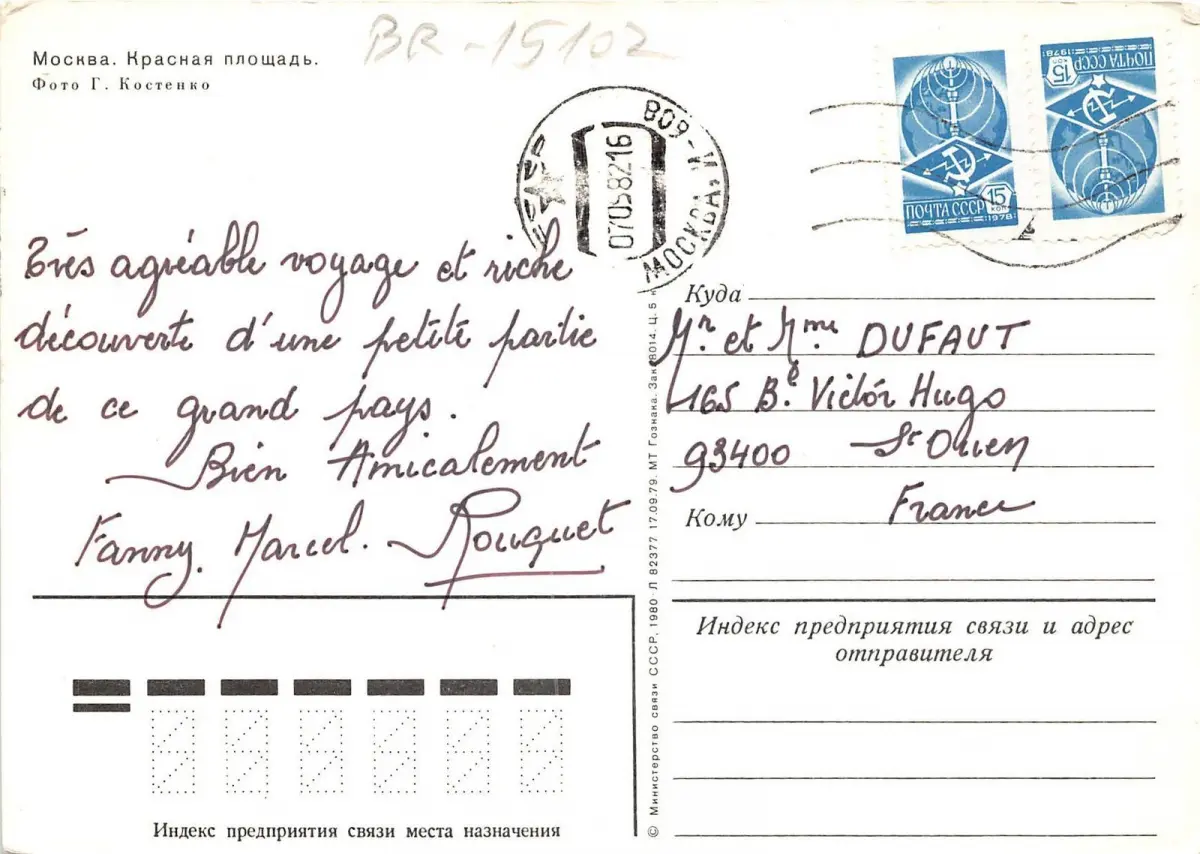 BR-15102
Москва. Красная площадь.
Фото Г. Костенко
МОСКВА, И-809
СССР
07058216
ПОЧТА СССР 15 КОП 1978
ПОЧТА СССР 15 КОП 1978
Très agréable voyage et riche
découverte d'une petite partie
de ce grand pays.
Bien Amicalement
Fanny. Marcel. Rouquet
Куда
Mr. et Mme DUFAUT
165 Be. Victor Hugo
93400 St Ouen
Кому France
Индекс предприятия связи и адрес
отправителя
Индекс предприятия связи места назначения
© Министерство связи СССР, 1980 Л 82377 17.09.79. МТ Гознака. Зак. 8014. Ц. 5 к